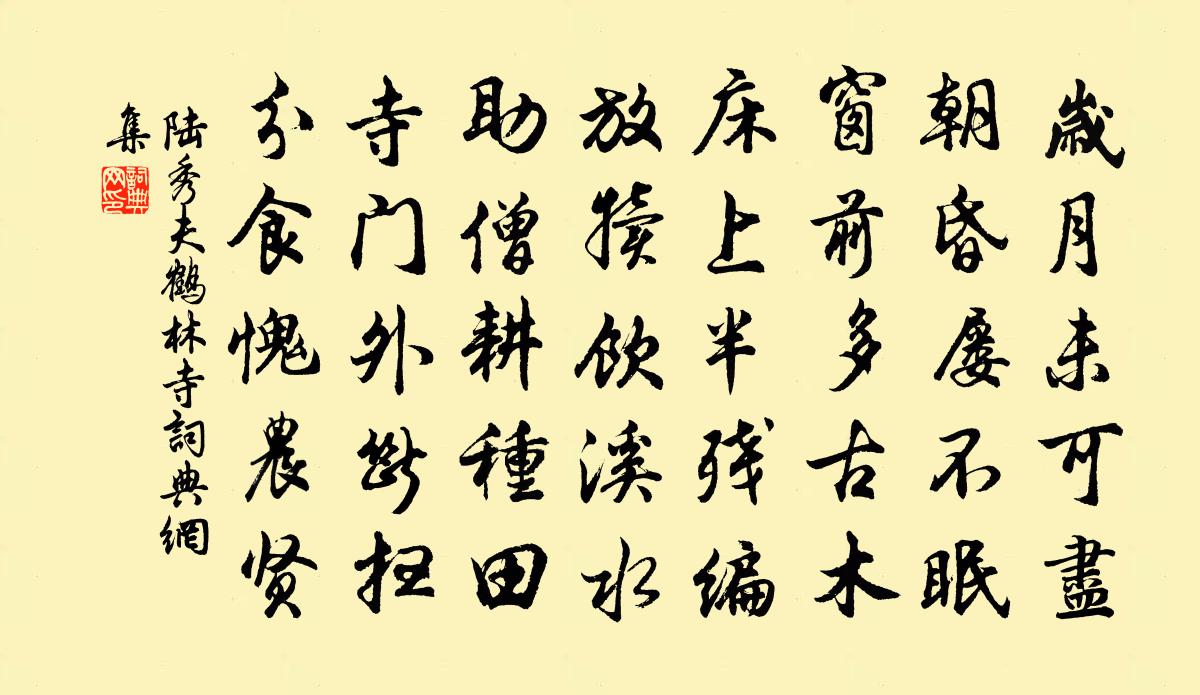 歲月未可盡
朝昏屡不眠
窗前多古木
床上半残编
放犢饮溪水
助僧耕種田
寺门外斷扫
分食愧農贤
陆秀夫鶴林寺詞典網
集
詞典网印